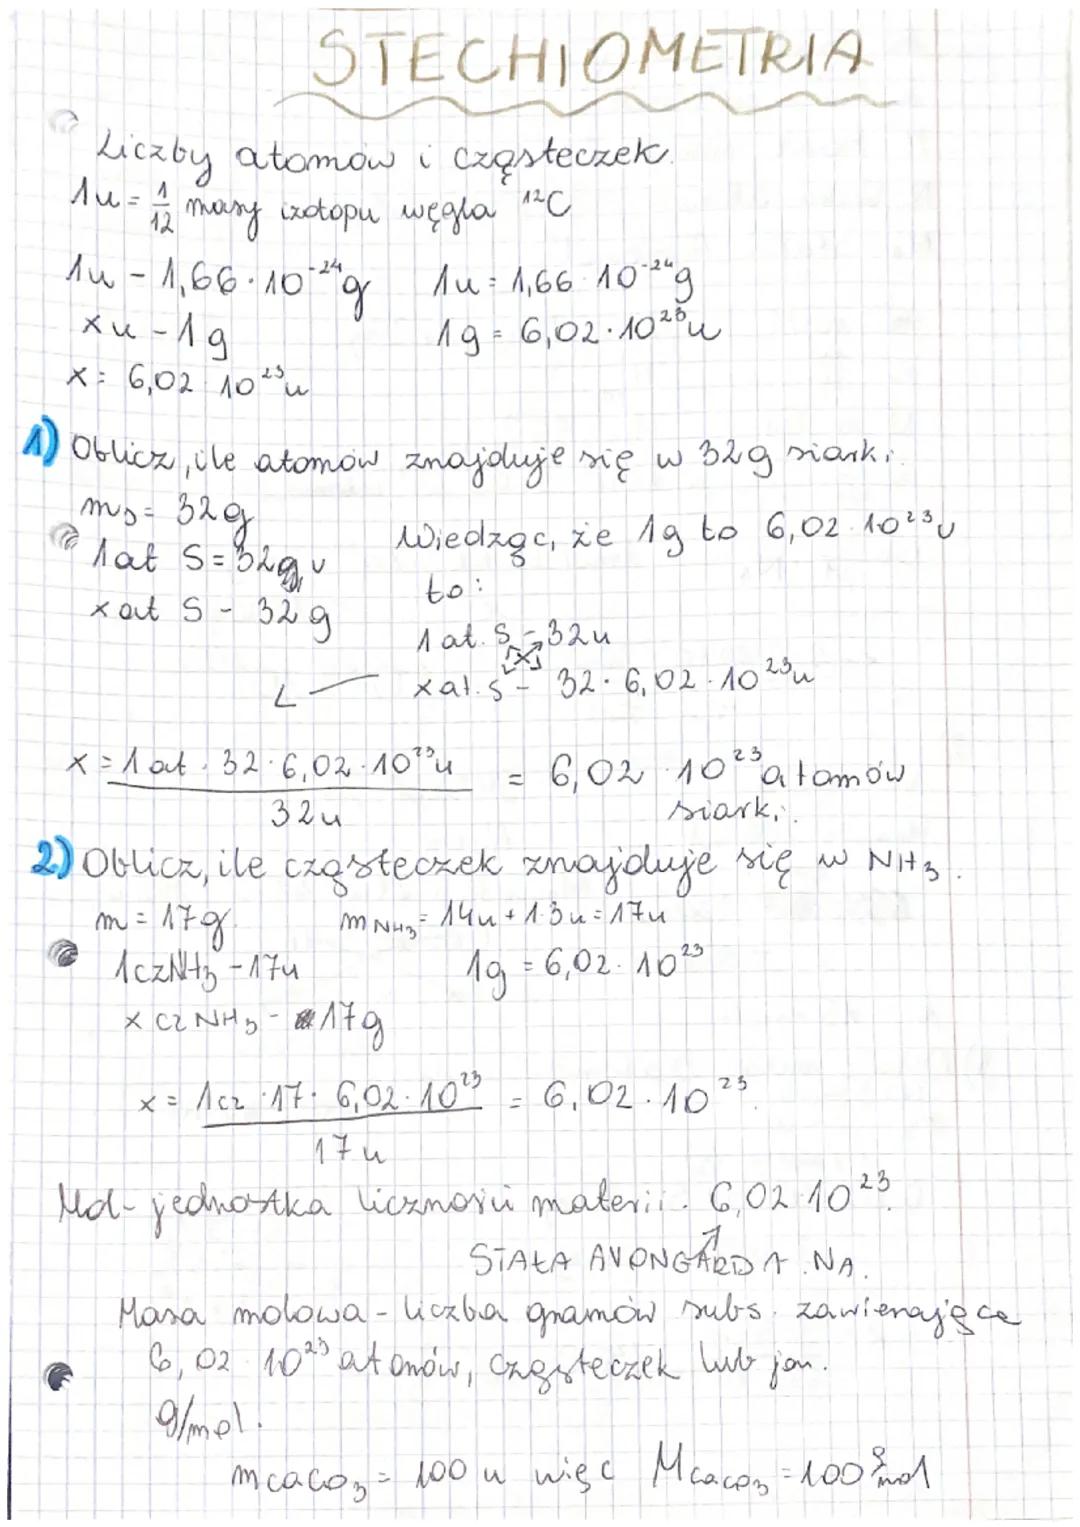 STECHIOMETRIA
Liczby atomów i cząsteczek.
1u = 1/12 masy izotopu węgla ¹²C
1u - 1,66·10⁻²⁴g   1u = 1,66·10⁻²⁴g
xu - 1g   1g = 6,02·10²³u
x = 6,02·10²³u
1) Oblicz, ile atomów znajduje się w 32g siarki.
mS = 32g
Wiedząc, że 1g to 6,02·10²³u
1at S = 32 u
to:
x at S - 32g
1 at. S - 32u
x at. S - 32·6,02·10²³u
x = 1at · 32·6,02·10²³u / 32u = 6,02·10²³ atomów siarki.
2) Oblicz, ile cząsteczek znajduje się w NH₃.
m = 17g.   mNH₃ = 14u + 1·3u = 17u
1czNH₃ - 17u   1g = 6,02·10²³
x cz NH₃ - 17g
x = 1cz · 17 · 6,02·10²³ / 17u = 6,02·10²³.
Mol - jednostka liczności materii. 6,02·10²³.
STAŁA AVONGARDA NA.
Masa molowa - liczba gramów subs. zawierające
6,02·10²³ atomów, cząsteczek lub jon.
g/mol.
mCaCO₃ = 100 u więc MCaCO₃ = 100 g/mol